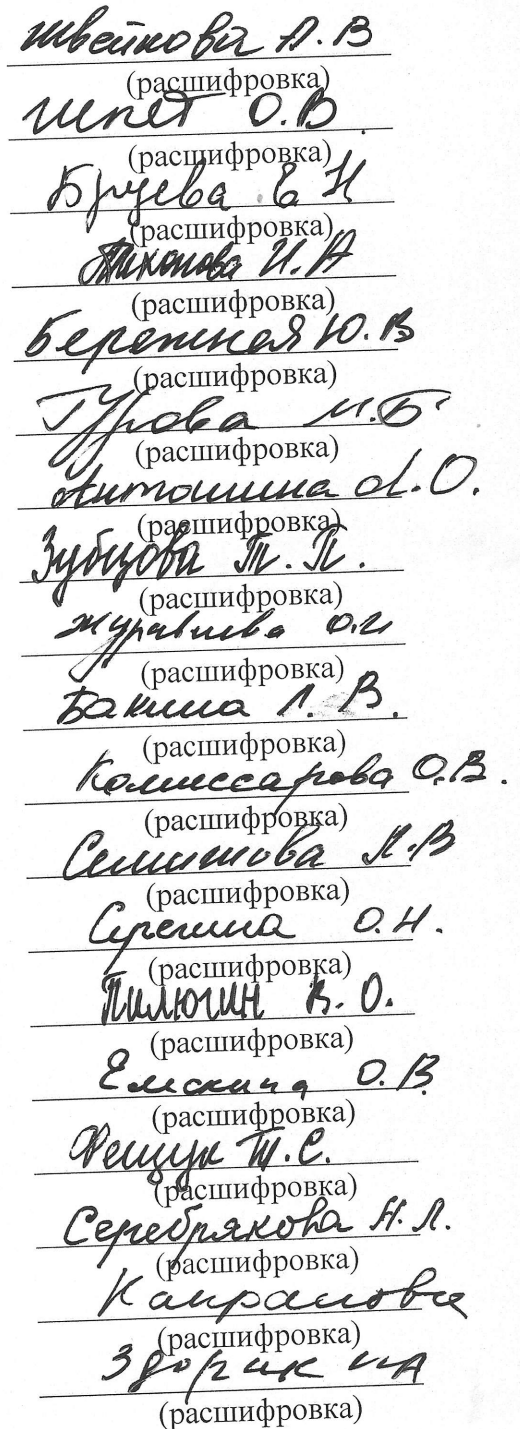 Швейкова А. В
(расшифровка)
Шпет О.В
(расшифровка)
Бруева Е Н
(расшифровка)
Тихонова И. А
(расшифровка)
Бережная Ю. В
(расшифровка)
Гурова М.Б
(расшифровка)
Антошина Л.О.
(расшифровка)
Зубцова Т. П.
(расшифровка)
Журавлева О.И
(расшифровка)
Бакина Л. В.
(расшифровка)
Комиссарова О.В.
(расшифровка)
А.В
(расшифровка)
Сурепина О.Н.
(расшифровка)
Пилюгин В. О.
(расшифровка)
О.В
(расшифровка)
Фещук Т.С.
(расшифровка)
Серебрякова Н.Л.
(расшифровка)
(расшифровка)
Здорик ИА
(расшифровка)